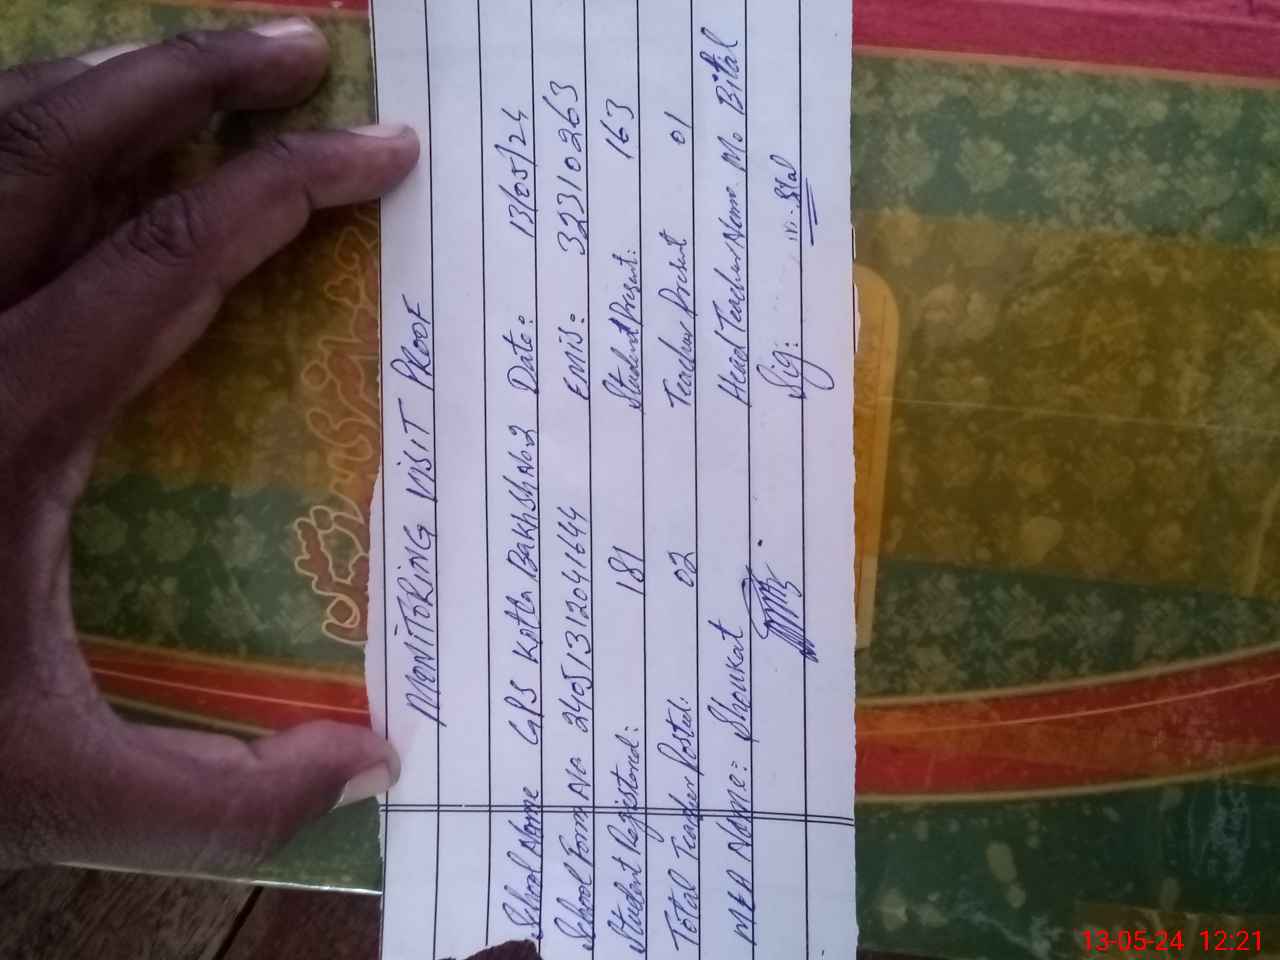 MONITORING VISIT PROOF
School Name GPS Kotla Bakhsh No2 Date: 13/05/24
School Form No 24051312041644 EMIS: 32310263
Student Registered: 181 Student Present: 163
Total Teacher Posted: 02 Teacher Present 01
MEA Name: Shoukat Head Teacher Name Mo Bilal
Sig:
13-05-24 12:21